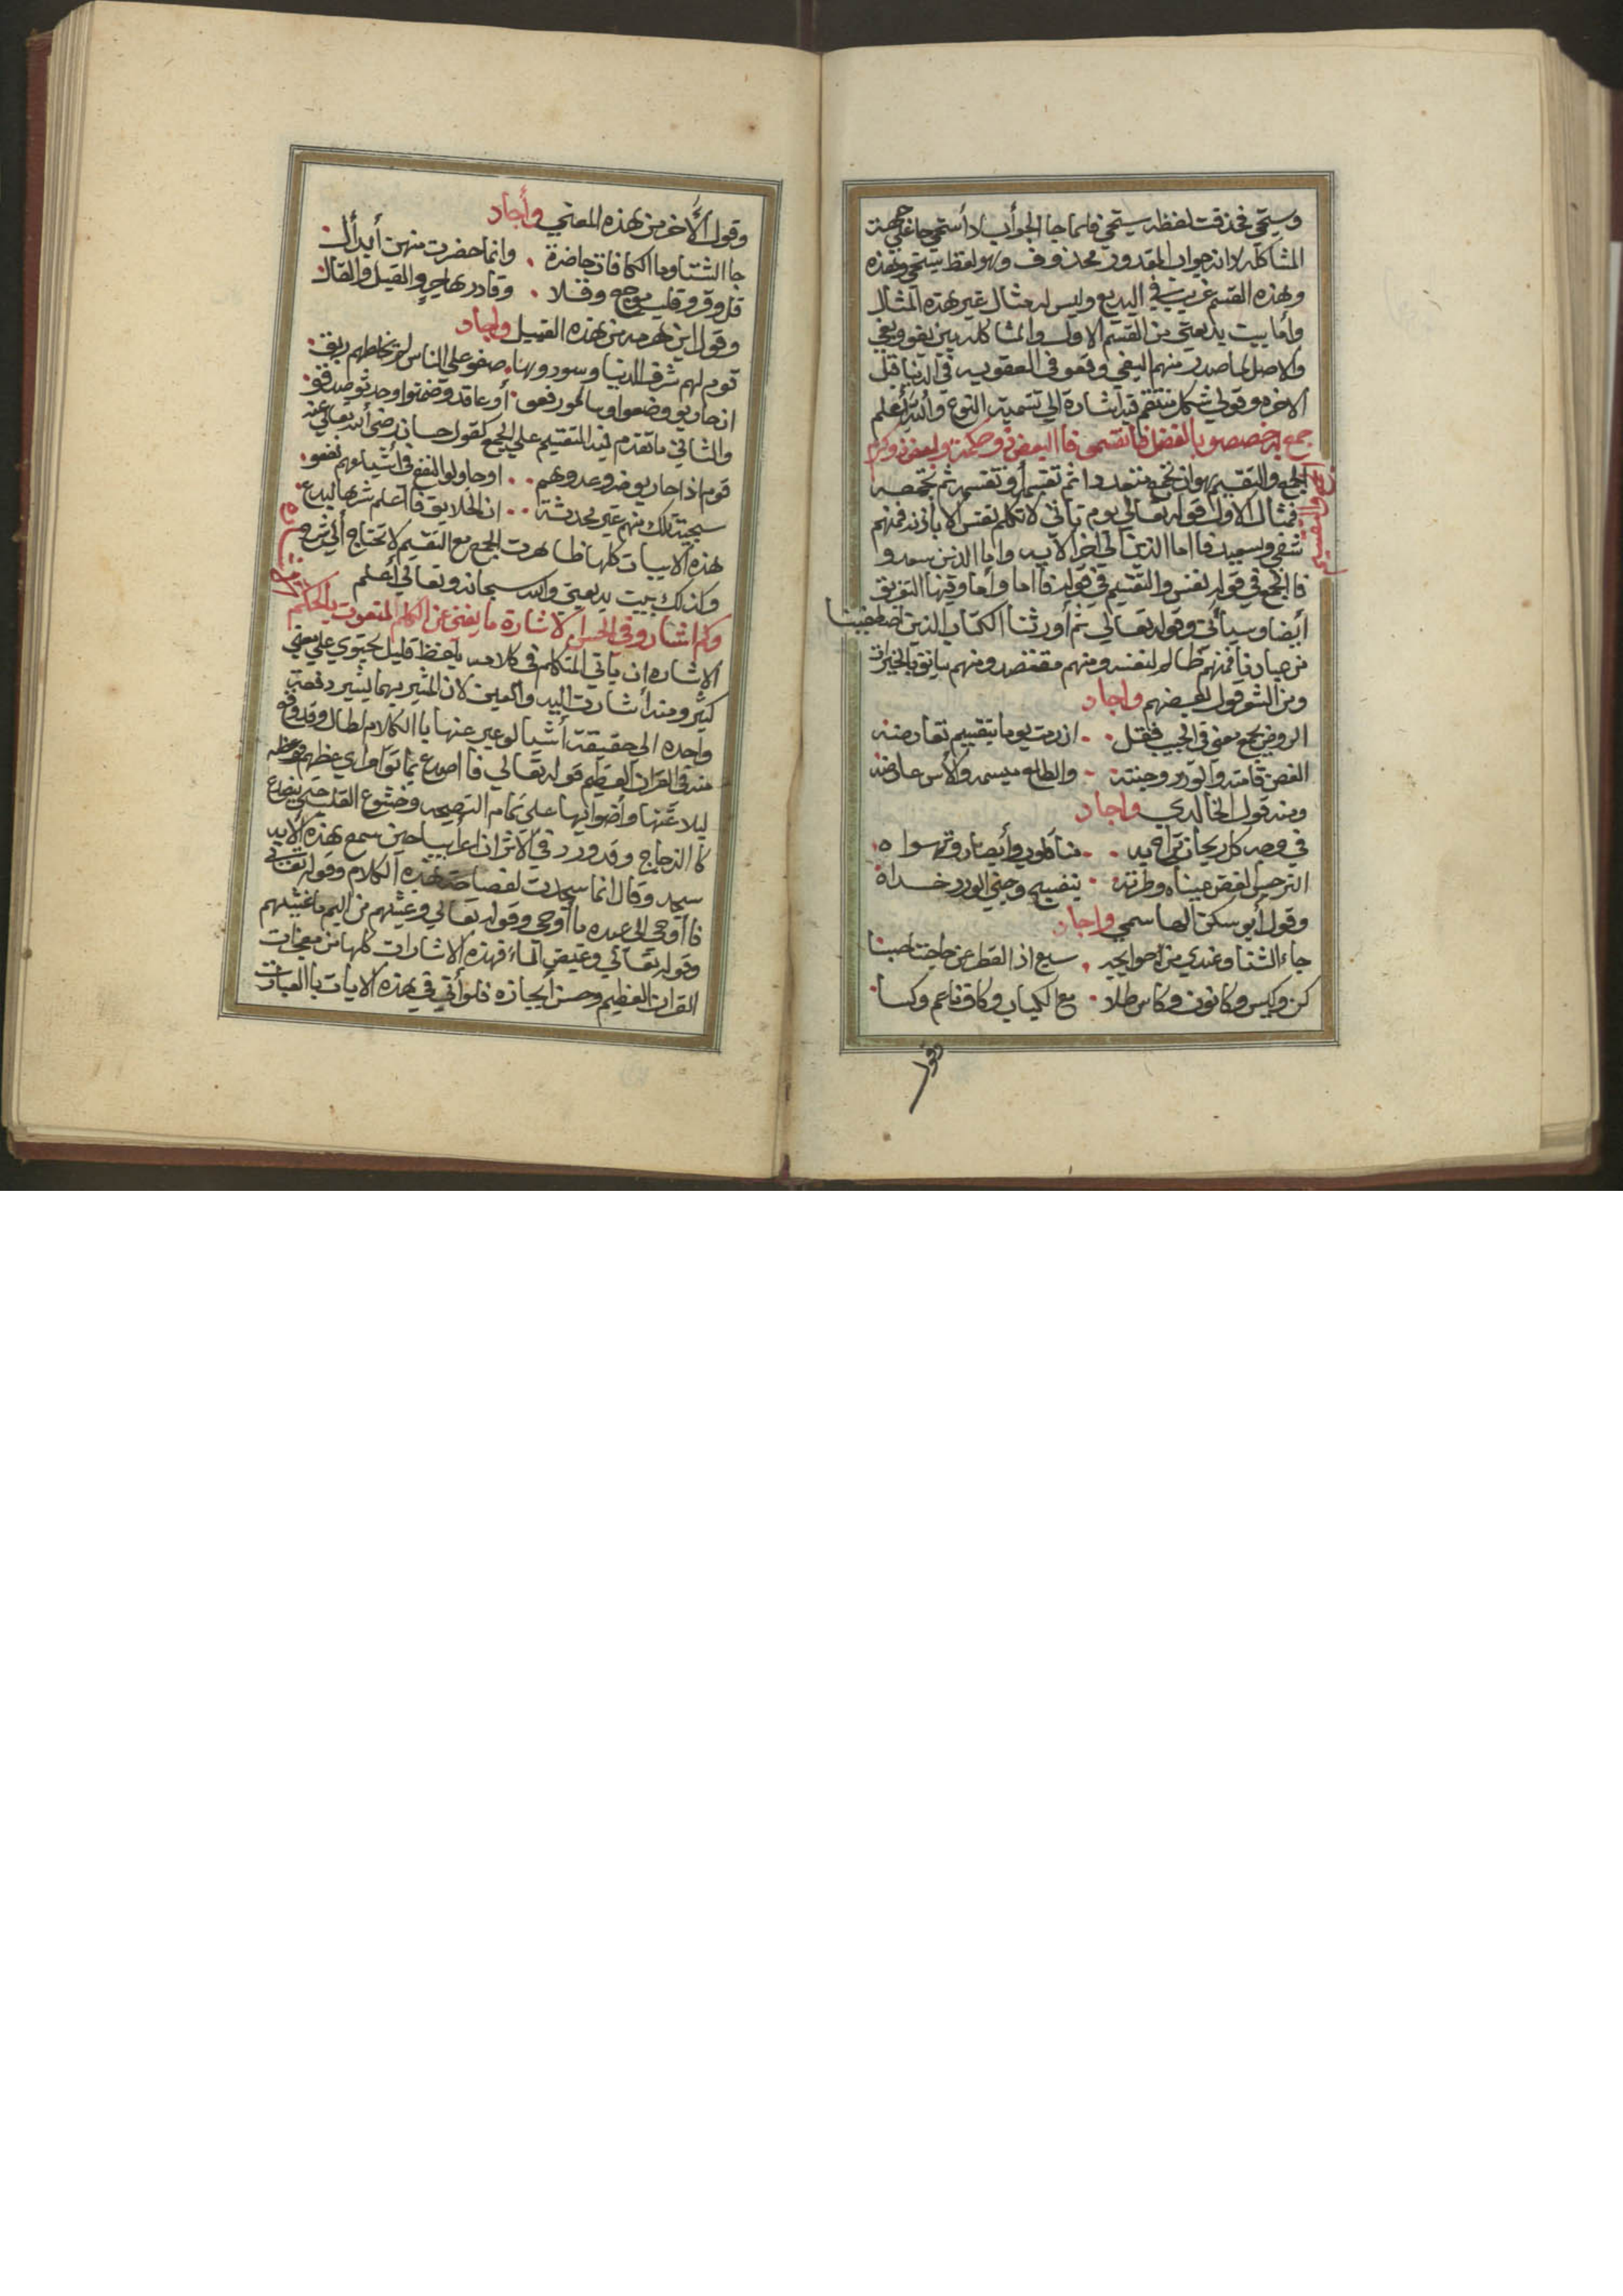 وسيتمي فحذفت لفظه ستيمي فلما جا الجواب لاأستمي جا علي جهة
المشاكله لانه جواب المقدور محذوف وهو لفظ ستيمي وهذه
وهذه القسم غريب في البديع وليس له مثال غير هذه المثال
وأما بيت بديعتي من القسم الاول والمشاكله بين بغو وبغي
والاصل لما صدر منهم البغي وقعو في العقوبه في الدنيا قبل
الاخره وقولي شكل منتقم فيه اشارة الي تسمية النوع والله أعلم
جمع به خصصو بالفضل فانقسمي فاالبعض ذو حكمة والبعض ذو كرم
الجمع والتقسيم
الجمع والتقسيم هو ان تجمع متعددا ثم تقسم أو تقسم ثم تجمعه
فمثال الاول قوله تعالي يوم تأتي لا تكلم نفس الا بأذنه فمنهم
شقي وسعيد فااما الذين الي اخر الايه واما الذين سعدوا
فاالجمع في قوله نفس والتقسيم في قوله فااما وأما وفيها التفريق
أيضا وسيأتي وقوله تعالي ثم أورثنا الكتاب الذين اصطفينا
من عبادنا فمنهم ظالم لنفسه ومنهم مقتصد ومنهم سابق بالخيرات
ومن الشعر قول بعضهم واجاد
الروض يجمع معني في الحبيب فقل ٠٠ ان رمت يوما بتقسيم تعارضه
الغصن قامته والورد وجنته ٠٠ والطلع مبسمه والأس عارضه
ومنه قول الخالدي واجاد
في وصه كل ريحان تراه به ٠٠ مناظور وأبصار وتهواه
النرجس الغض عيناه وطرته ٠٠ بنفسج وجني الورد خداه
وقول أبو سكرة الهاسمي واجاد
جاء الشتا وعندي من حوايجه ٠ سبع اذا القطر عن حاجتنا حبسا
كن وكيس وكانون وكاس طلا ٠ مع الكباب وكاف ناعم وكسا
وقول
وقول الأخر من هذه المعني وأجاد
جا الشتا وما الكافات حاضرة ٠ وانما حضرت منهن أبدال
قل وقر وقلب موجع وقلا ٠ وقادر هاجر والقيل والقال
وقول ابن هرمه من هذه القبيل واجاد
قوم لهم شرف الدنيا وسود وهنا ٠ صفو علي الناس لم يخلطهم ريف
ان حاربو وضعوا وسالمو رفعو ٠ أو عاقدو وضمنوا وحدثو صدقو
والثاني ماتقدم فيه التقسيم علي الجمع كقول حسان رضي الله تعالي عنه
قوم اذا حاربو ضرو عدوهم ٠٠ اوحاولو النفع في أشياعهم نفعو
سجية تلك منهم غير محدثة ٠٠ ان الخلايق فاأعلم شرها البدع
هذه الابيات كلها ظاهرت الجمع مع التقسيم لا تحتاج ألي شرح
وكذلك بيت بديعتي والله سبحانه وتعالي أعلم
وكم اشارو في الحسن الاشارة مايغني عن الكلم المنعوت بالحكم
الاشاره ان ياتي المتكلم في كلامه بلفظ قليل يحتوي علي معني
كثير ومنه أشارت اليد والعين لان المشير بهما يشير دفعت
واحده الي حقيقة أشيا لو عبر عنها باالكلام لطال وقد وقع
منه في القران العظيم قوله تعالي فا اصدع بما تؤمر
كا الزجاج وقد ورد في الاثر ان اعرابيا حين سمع هذه الايه
سجد وقال انما سجدت لفصاحة هذه الكلام وقوله تعالي
فا أوحي الي عبده ما أوحي وقوله تعالي وغشيهم من اليم ماغشيهم
وقوله تعالي وغيض الماء فهذه الاشارات كلها من معجزات
القران العظيم وحسن أيجازه فلو أتي في هذه الايات باالعبارت